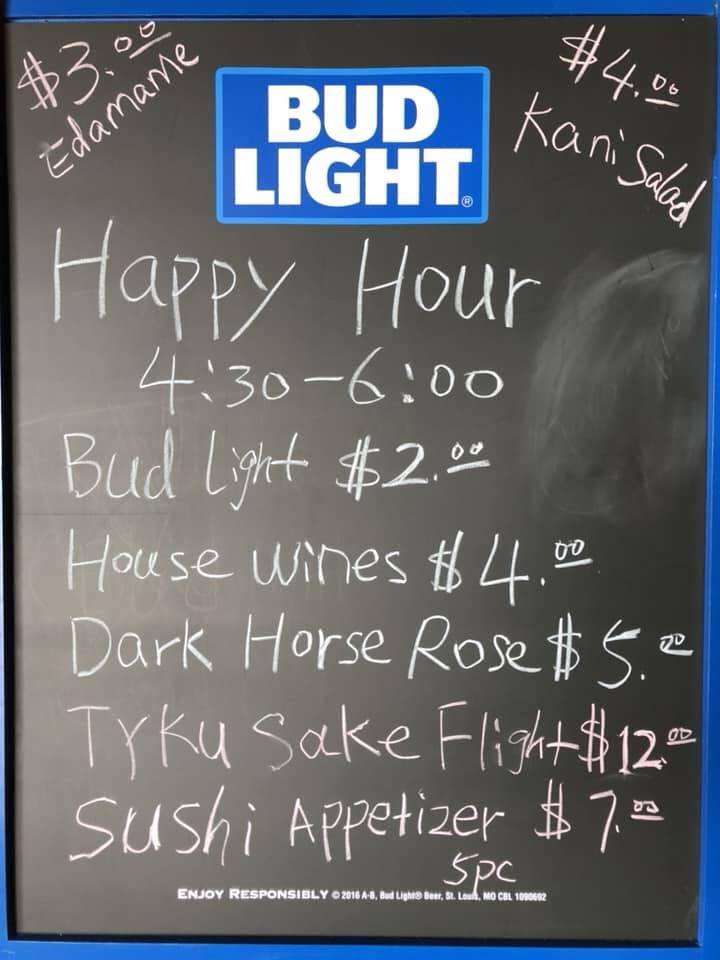 $3.00
Edamame
$4.00
Kani Salad
BUD
LIGHT®
Happy Hour
4:30-6:00
Bud Light $2.00
House Wines $4.00
Dark Horse Rose $5.00
TYKu Sake Flight $12.00
Sushi Appetizer $7.00
5pc
ENJOY RESPONSIBLY © 2016 A-B, Bud Light® Beer, St. Louis, MO CBL 1090692